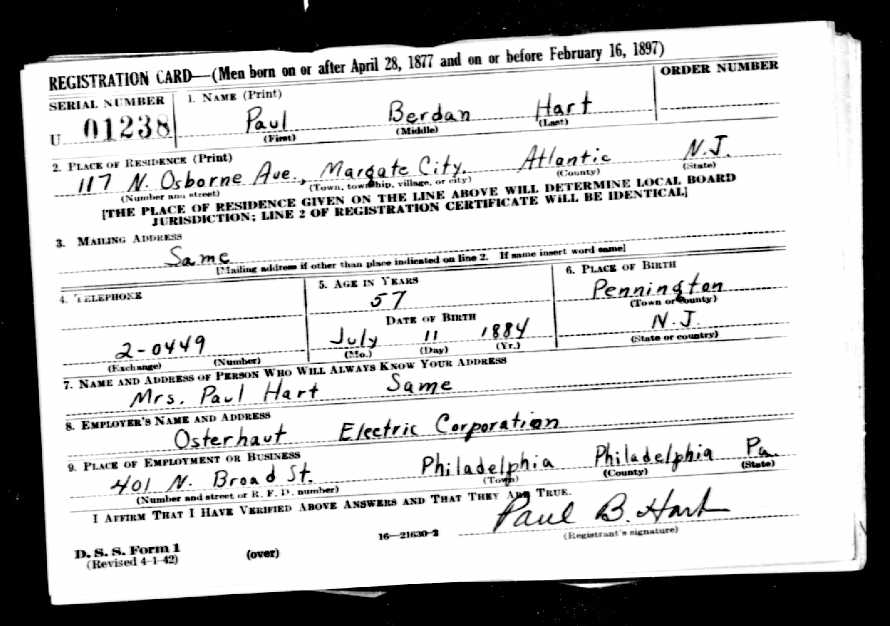 REGISTRATION CARD—(Men born on or after April 28, 1877 and on or before February 16, 1897)
SERIAL NUMBER 1. NAME (Print) ORDER NUMBER
U 01238 Paul Berdan Hart
(First) (Middle) (Last)
2. PLACE OF RESIDENCE (Print)
117 N. Osborne Ave., Margate City. Atlantic N.J.
(Number and street) (Town, township, village, or city) (County) (State)
[THE PLACE OF RESIDENCE GIVEN ON THE LINE ABOVE WILL DETERMINE LOCAL BOARD
JURISDICTION; LINE 2 OF REGISTRATION CERTIFICATE WILL BE IDENTICAL]
3. MAILING ADDRESS
Same
[Mailing address if other than place indicated on line 2. If same insert word same]
4. TELEPHONE 5. AGE IN YEARS 6. PLACE OF BIRTH
57 Pennington
(Town or county)
DATE OF BIRTH
2-0449 July 11 1884 N.J.
(Exchange) (Number) (Mo.) (Day) (Yr.) (State or country)
7. NAME AND ADDRESS OF PERSON WHO WILL ALWAYS KNOW YOUR ADDRESS
Mrs. Paul Hart Same
8. EMPLOYER'S NAME AND ADDRESS
Osterhaut Electric Corporation
9. PLACE OF EMPLOYMENT OR BUSINESS
401 N. Broad St. Philadelphia Philadelphia Pa.
(Number and street or R. F. D. number) (Town) (County) (State)
I AFFIRM THAT I HAVE VERIFIED ABOVE ANSWERS AND THAT THEY ARE TRUE.
Paul B. Hart
D. S. S. Form 1 (over) 16—21630-2 (Registrant's signature)
(Revised 4-1-42)